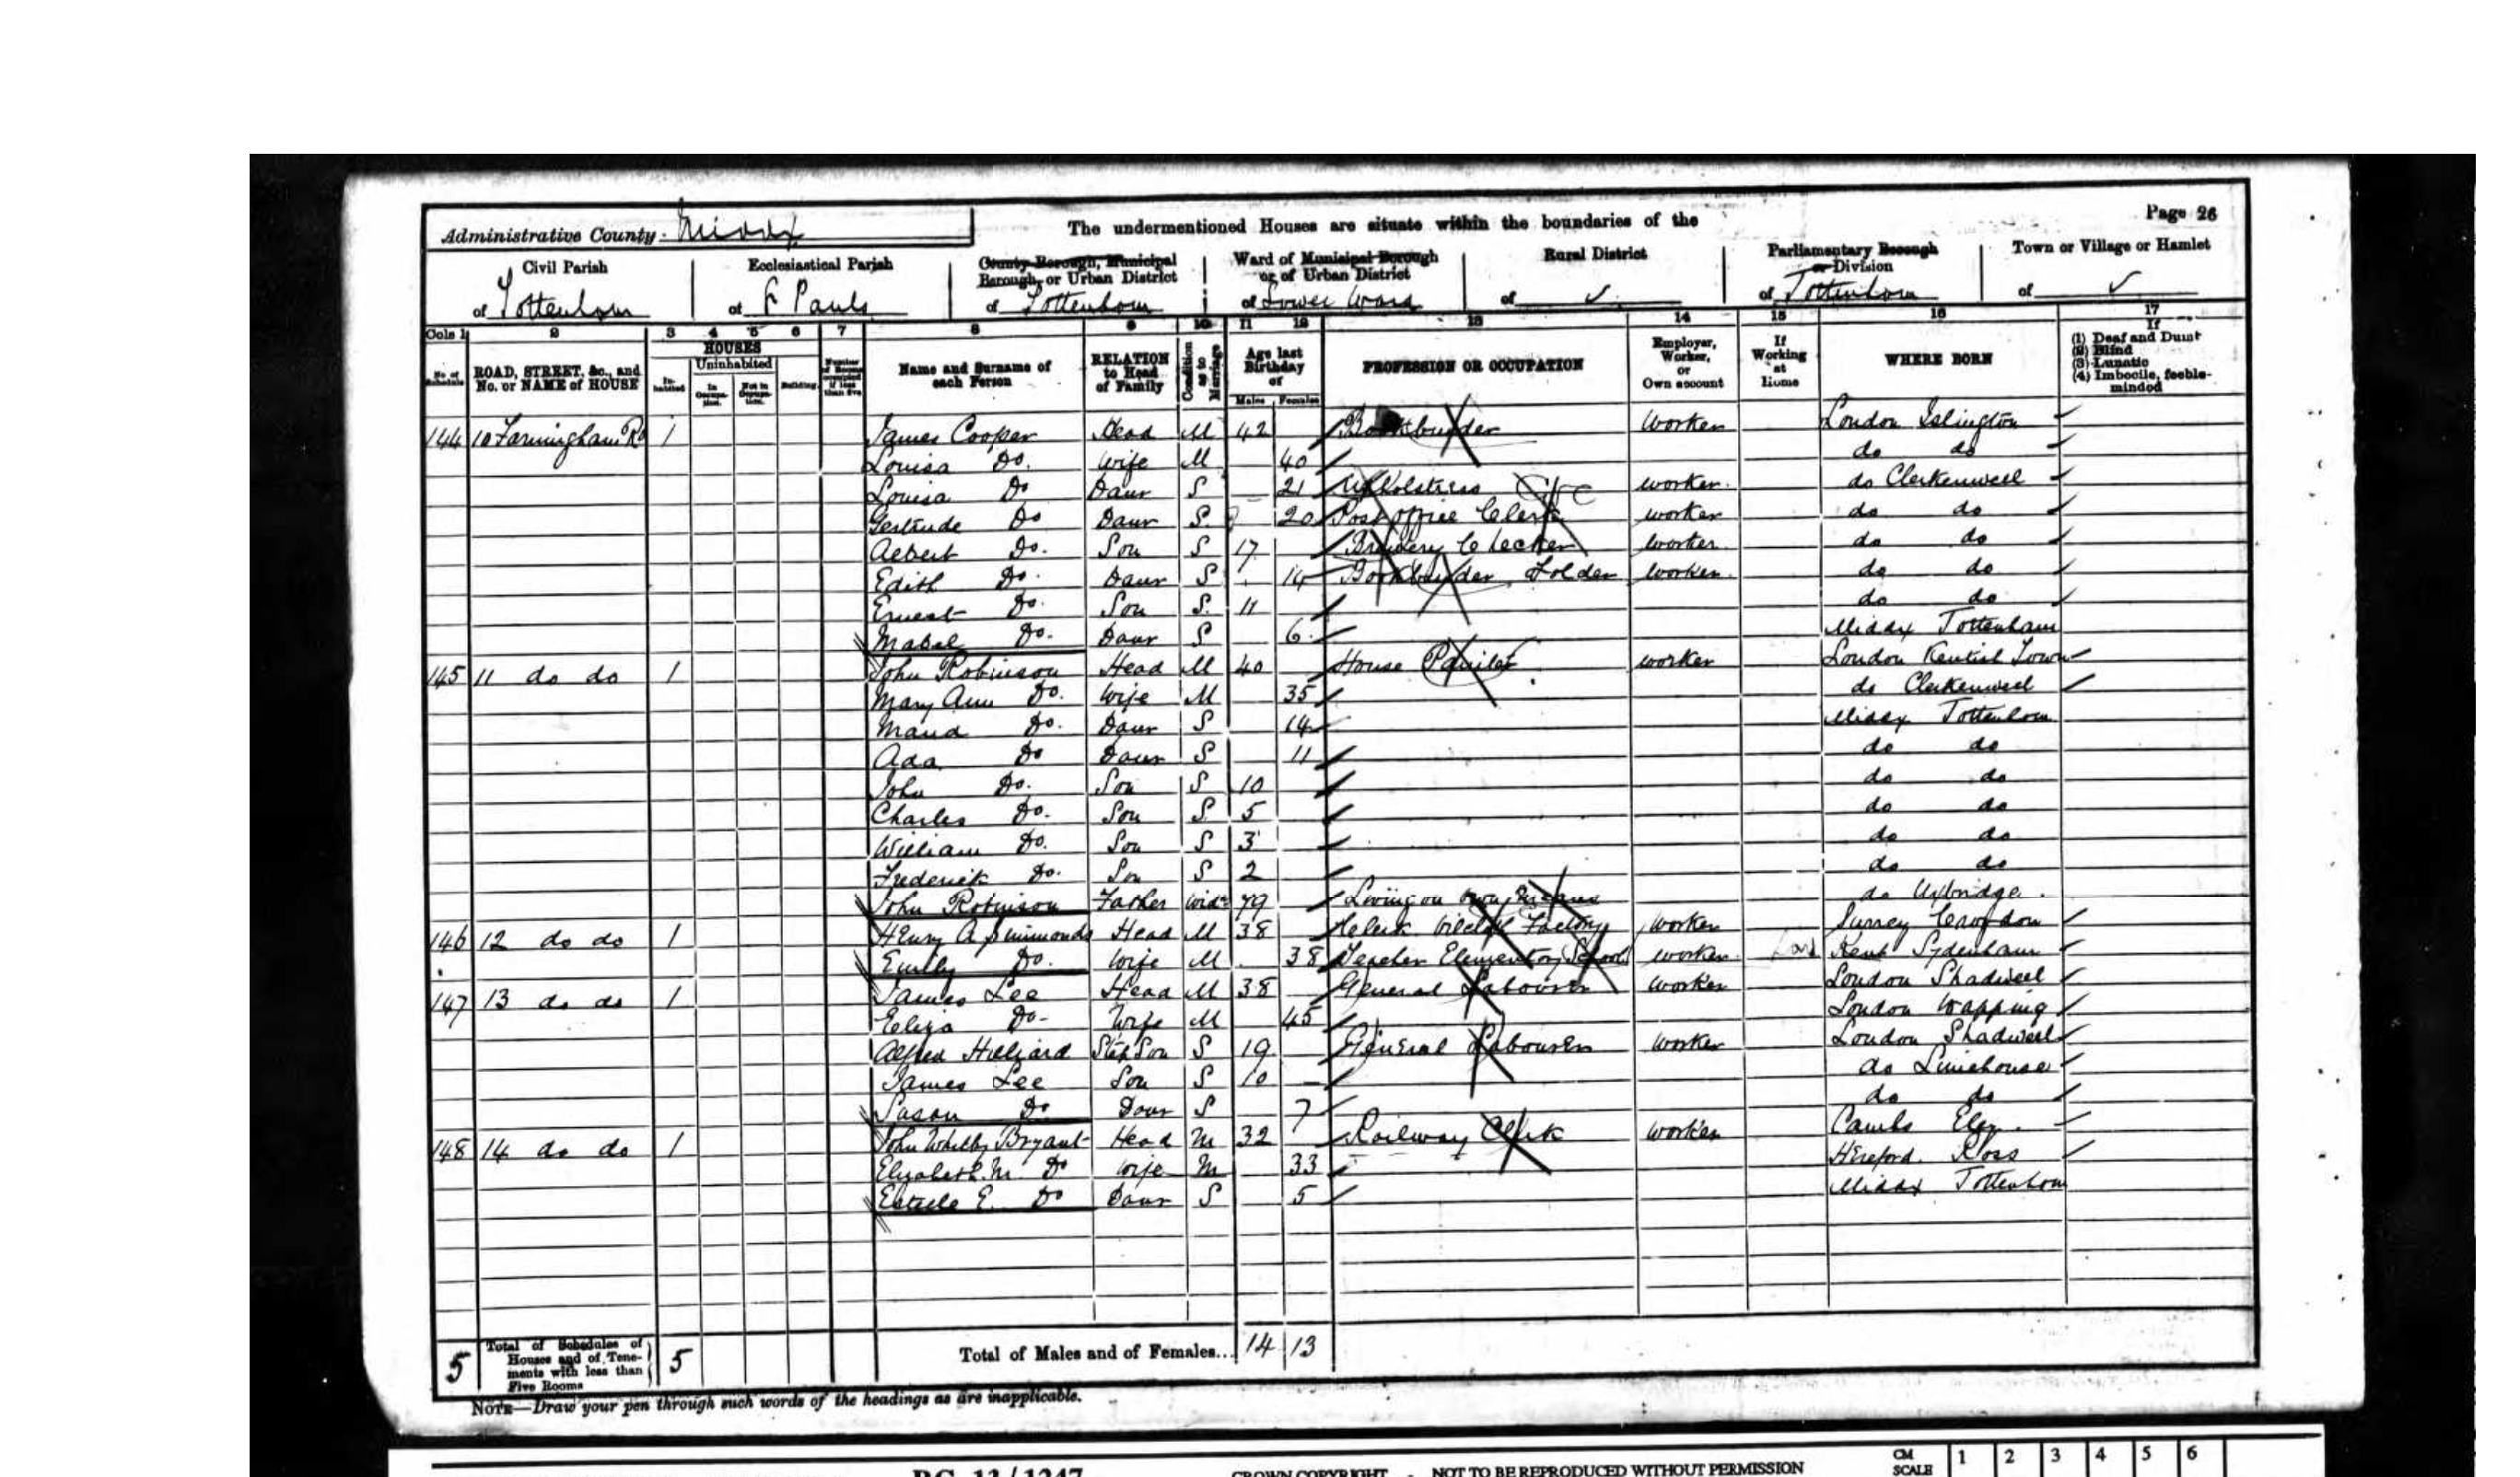 Page 26
Administrative County Middx
The undermentioned Houses are situate within the boundaries of the
Civil Parish of Tottenham
Ecclesiastical Parish of St Pauls
County Borough, Municipal Borough, or Urban District of Tottenham
Ward of Municipal Borough or of Urban District of Lower Ward
Rural District of ✓
Parliamentary Borough or Division of Tottenham
Town or Village or Hamlet of ✓
Cols 1 2 3 4 5 6 7 8 9 10 11 12 13 14 15 16 17
No. of Schedule
ROAD, STREET, &c., and No. or NAME of HOUSE
HOUSES
Inhabited
Uninhabited
In Occupation.
Not in Occupation.
Building.
Number of Rooms occupied if less than five
Name and Surname of each Person
RELATION to Head of Family
Condition as to Marriage
Age last Birthday of
Males Females
PROFESSION OR OCCUPATION
Employer, Worker, or Own account
If Working at Home
WHERE BORN
If
(1) Deaf and Dumb
(2) Blind
(3) Lunatic
(4) Imbecile, feeble-minded
144 10 Farningham Rd 1 James Cooper Head M 42 Bookbinder Worker London Islington
Louisa Do. Wife M 40 do do
Louisa Do Daur S 21 Upholstress worker. do Clerkenwell
Gertrude Do Daur S. 20 Post office Clerk worker do do
Albert Do. Son S 17 Brewery Checker worker do do
Edith Do. Daur S 14 Bookbinder Folder worker. do do
Ernest Do. Son S. 11 do do
Mabel Do. Daur S 6 Middx Tottenham
145 11 do do 1 John Robinson Head M 40 House Painter worker London Kentish Town
Mary Ann Do. Wife M 35 do Clerkenwell
Maud Do. Daur S 14 Middx Tottenham
Ada Do Daur S 11 do do
John Do. Son S 10 do do
Charles Do. Son S 5 do do
William Do. Son S 3 do do
Frederick Do. Son S 2 do do
John Robinson Father Widr 79 Living on own Means do Uxbridge.
146 12 do do 1 Henry A Simmonds Head M 38 Clerk Factory worker Surrey Croydon
Emily Do. Wife M 38 Teacher Elementary School worker Kent Sydenham
147 13 do do 1 James Lee Head M 38 General Labourer worker London Shadwell
Eliza Do- Wife M 45 London Wapping
Alfred Hilliard Step Son S 19 General Labourer worker London Shadwell
James Lee Son S 10 do Limehouse
Susan Do Daur S 7 do do
148 14 do do 1 John Whitby Bryant Head M 32 Railway Clerk worker Cambs Ely.
Elizabeth M. Do Wife M 33 Hereford. Ross
Estelle E. Do Daur S 5 Middx Tottenham
5 Total of Schedules of Houses and of Tenements with less than Five Rooms 5 Total of Males and of Females... 14 13
NOTE—Draw your pen through such words of the headings as are inapplicable.
RG 13/1247
CROWN COPYRIGHT. NOT TO BE REPRODUCED WITHOUT PERMISSION
CM SCALE 1 2 3 4 5 6